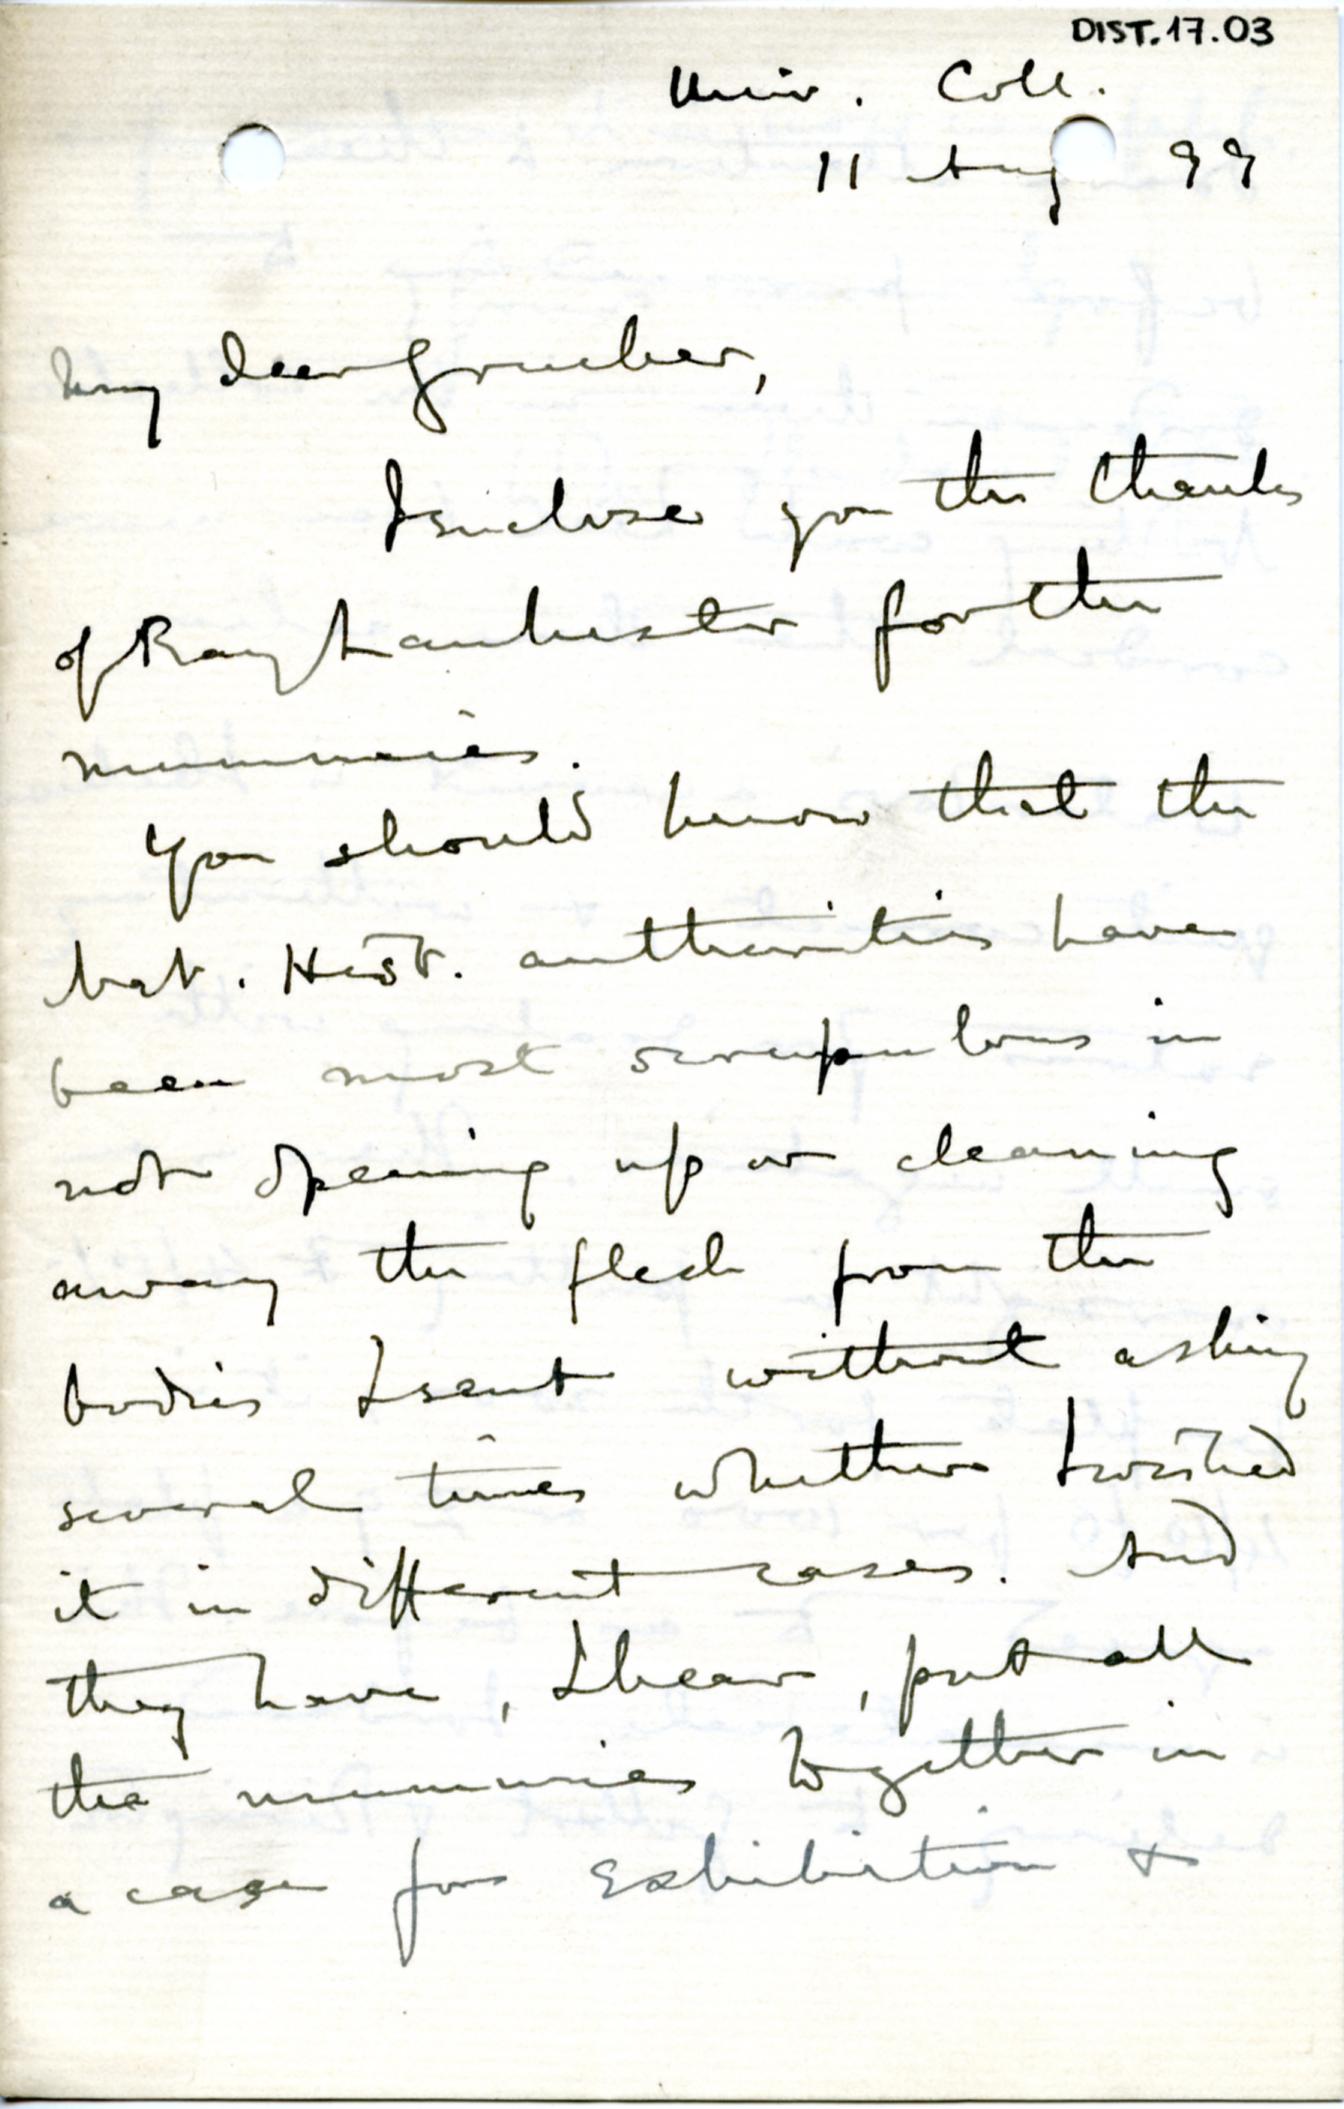 DIST.17.03
Univ. Coll.
11 Aug 99
My dear Grueber,
I enclose you the thanks
of Ray Lankester for the
mummies.
You should know that the
Nat. Hist. authorities have
been most scrupulous in
not opening up or cleaning
away the flesh from the
bodies I sent without asking
several times whether I wished
it in different cases. And
they have, I hear, put all
the mummies together in
a case for exhibition &